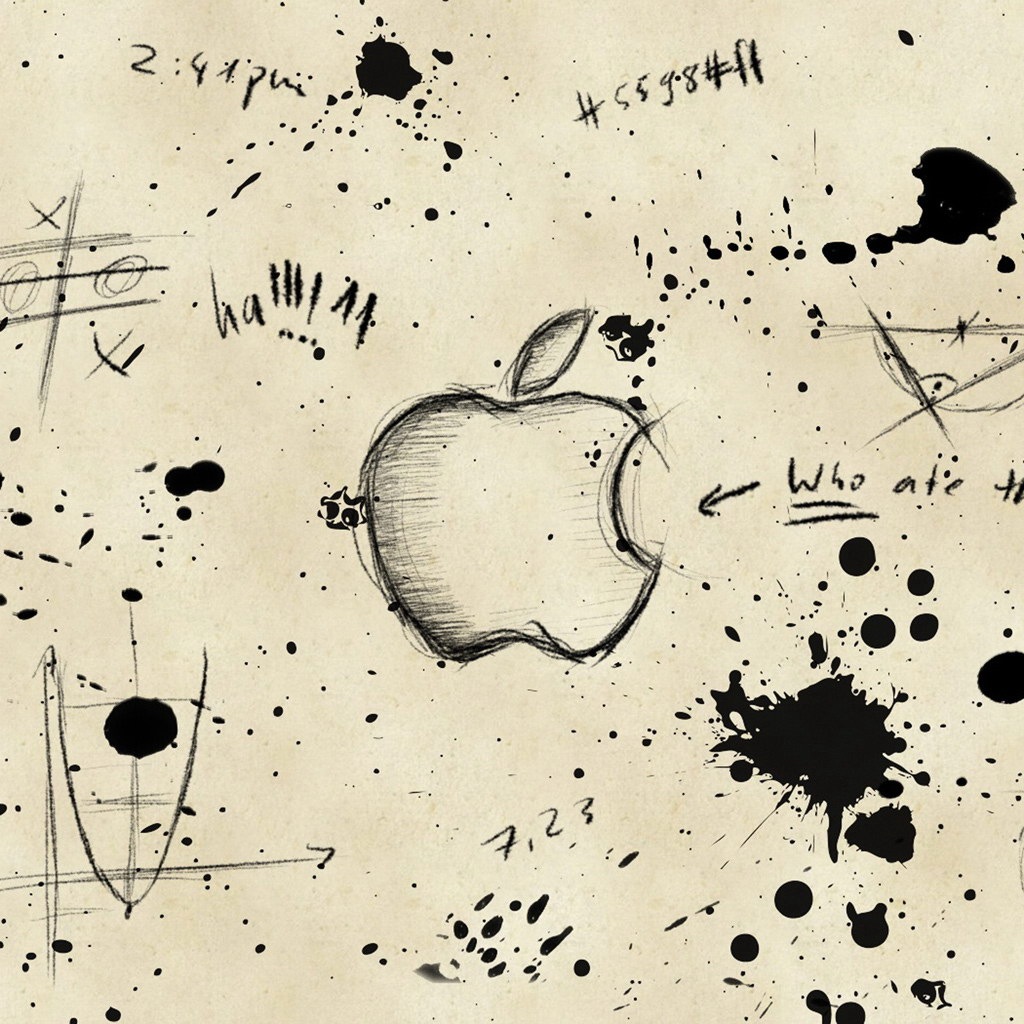 2:41pm
#5598#ff
ha!!!!! 11
Who ate
7,23